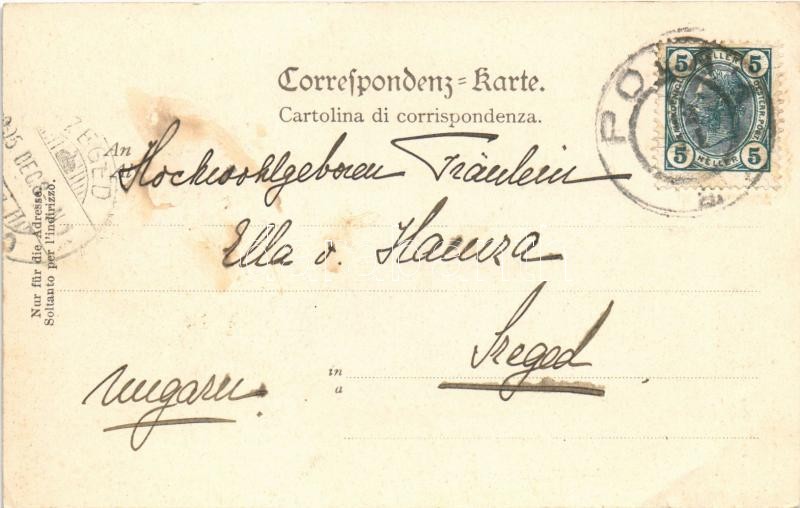 Correspondenz=Karte.
Cartolina di corrispondenza.
An
Hochwohlgeboren Fräulein
Ella v. Hamza
in
a
Szeged
Ungarn.
Nur für die Adresse.
Soltanto per l'indirizzo.
SZEGED
DEC
PO
5 HELLER 5
5 HELLER 5